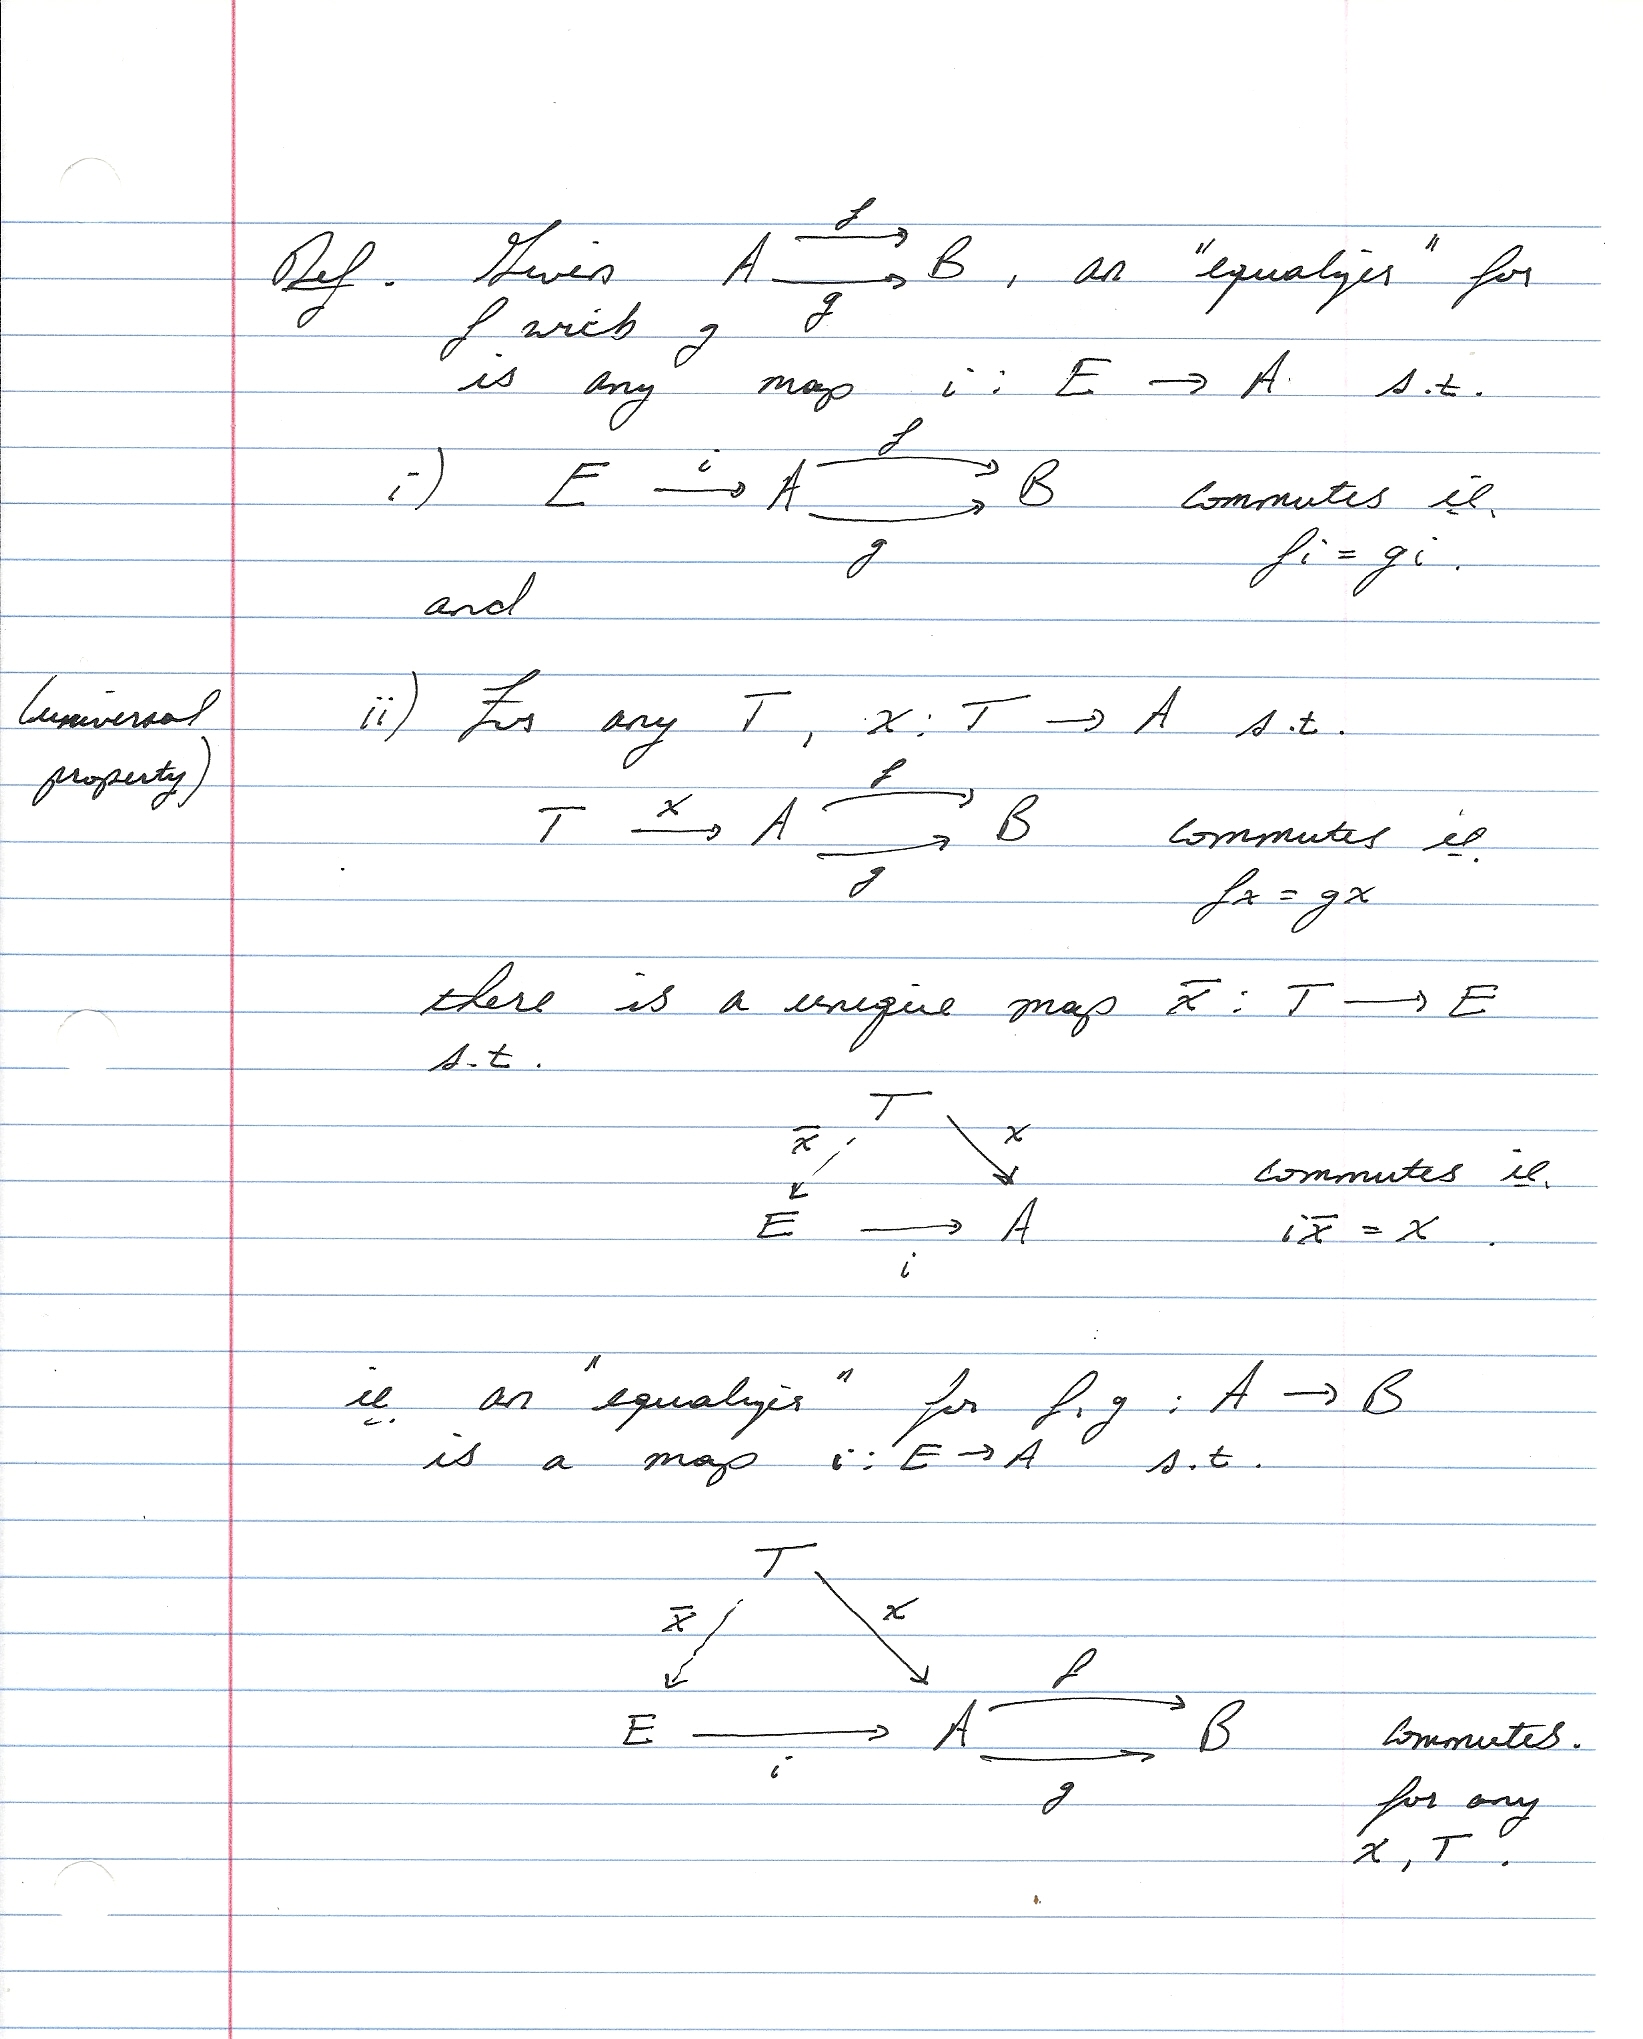 f
Def. Given A ⇉ B, an "equalizer" for
g
f with g
is any map i : E → A s.t.
i) E →^i A ⇉ B commutes ie.
f
g
fi = gi.
and
(universal property)
ii) For any T, x : T → A s.t.
f
T →^x A ⇉ B commutes ie.
g
fx = gx
there is a unique map x̄ : T → E
s.t.
T
x̄ x
commutes ie.
E → A
i x̄ = x .
i
ie. an "equalizer" for f, g : A → B
is a map i : E → A s.t.
T
x̄ x
f
E → A ⇉ B commutes.
i
g
for any
x, T .